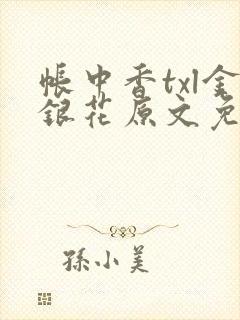 帳中香txl金
銀花原文免
孫小美